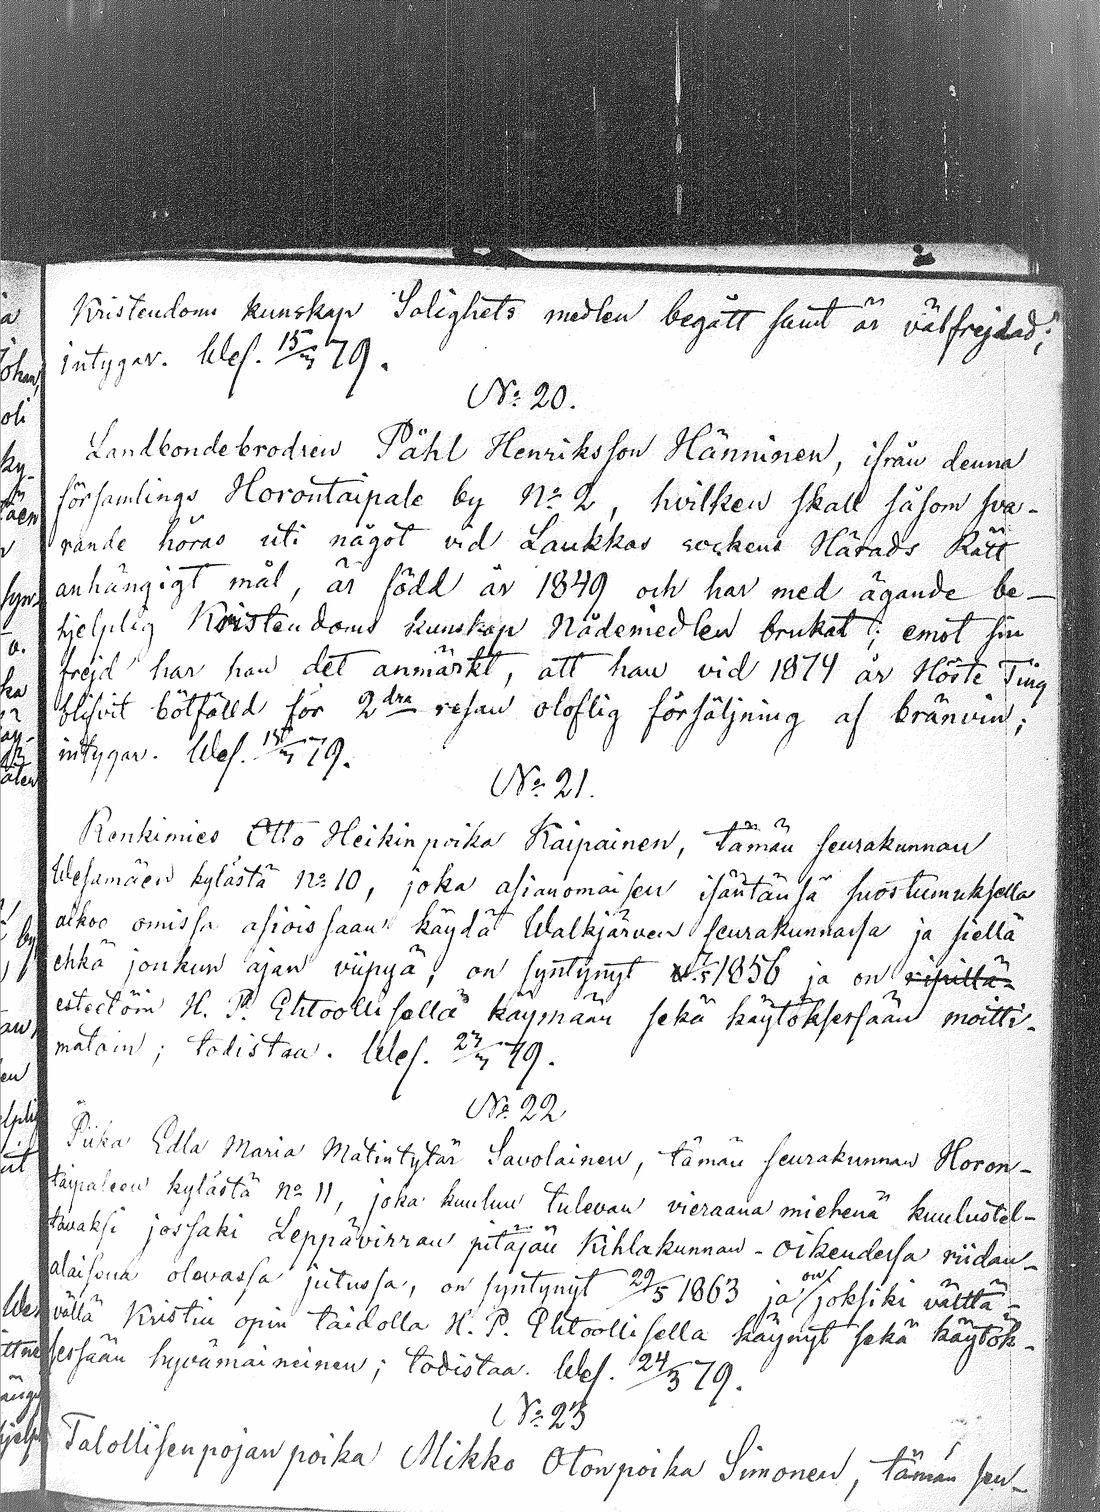 Kristendoms kunskap Salighets medlen begått samt är välfrejdad;
intygar. Wes. 15/3 79.
No 20.
Landbondebrodren Påhl Henriksson Hänninen, ifrån denna
församlings Horontaipale by No 2, hvilken skall såsom sva-
rande höras uti något vid Laukkas sockens Härads Rätt
anhängigt mål, är född år 1849 och har med ägande be-
hjelplig Kristendoms kunskap Nådemedlen brukat; emot sin
frejd har han det anmärkt, att han vid 1874 år Höste Ting
blifvit bötfälld för 2dra resan oloflig försäljning af bränvin;
intygar. Wes. 15/3 79.
No 21.
Renkimies Otto Heikinpoika Kaipainen, tämän seurakunnan
Wesamäen kylästä No 10, joka asianomaisen isäntänsä suostumuksella
aikoo omissa asioissaan käydä Walkjärven seurakunnassa ja siellä
ehkä jonkun ajan viipyä, on syntynyt 1856 ja on ripillä-
esteetöin H. P. Ehtoollisella käymään sekä käytöksessään moitti-
matoin; todistaa. Wes. 27/3 79.
No 22
Piika Edla Maria Matintytär Savolainen, tämän seurakunnan Horon-
taipaleen kylästä No 11, joka kuuluu tulevan vieraana miehenä kuulustel-
tavaksi jossaki Leppävirran pitäjän Kihlakunnan-oikeudessa riidan-
alaisena olevassa jutussa, on syntynyt 29/5 1863 ja on joksiki välttä-
vällä Kristin opin taidolla H. P. Ehtoollisella käynyt sekä käytök-
sessään hyvämaineinen; todistaa. Wes. 24/3 79.
No 23
Talollisenpojanpoika Mikko Otonpoika Simonen, tämän seu-